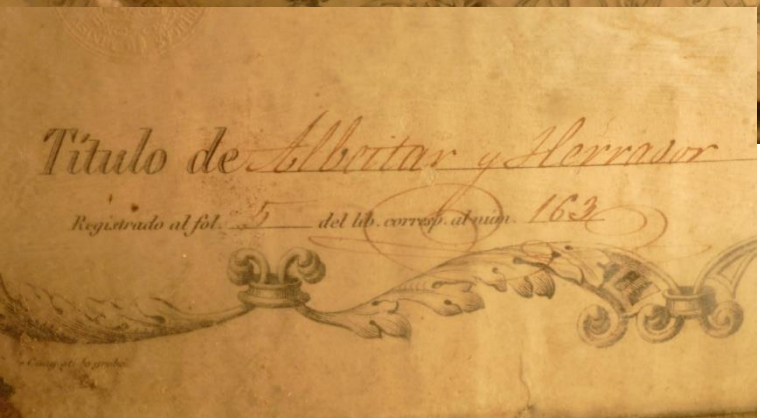 Título de Albeitar y Herrador
Registrado al fol. 5 del lib. corresp. al núm. 163